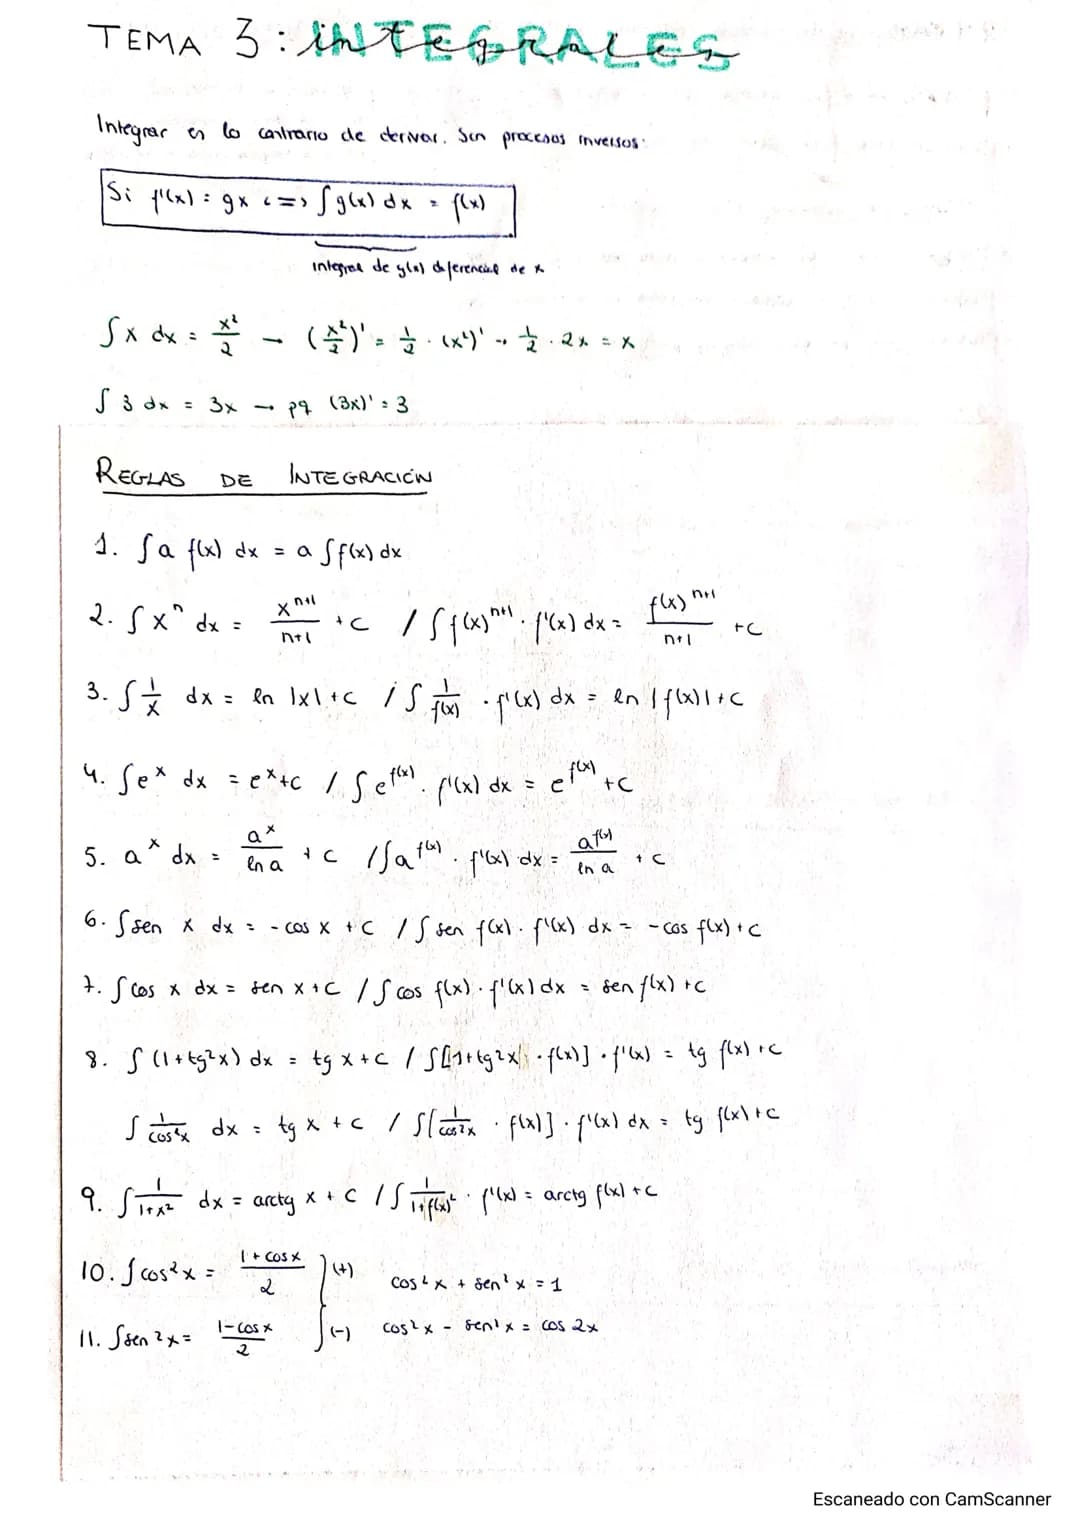 TEMA 3: INTEGRALES
Integrar es lo contrario de derivar. Son procesos inversos:
Si f'(x) = gx <=> ∫g(x) dx = f(x)
integral de g(x) diferencial de x
∫x dx = x²/2 → (x²/2)' = 1/2 · (x²)' → 1/2 · 2x = x
∫3 dx = 3x → pq (3x)' = 3
REGLAS DE INTEGRACIÓN
1. ∫a f(x) dx = a ∫f(x) dx
2. ∫xⁿ dx = xⁿ⁺¹/n+1 + C / ∫f(x)ⁿ⁺¹ · f'(x) dx = f(x)ⁿ⁺¹/n+1 + C
3. ∫1/x dx = ln |x| + C / ∫1/f(x) · f'(x) dx = ln |f(x)| + C
4. ∫eˣ dx = eˣ + C / ∫e^f(x) · f'(x) dx = e^f(x) + C
5. aˣ dx = aˣ/ln a + C / ∫a^f(x) · f'(x) dx = a^f(x)/ln a + C
6. ∫sen x dx = - cos x + C / ∫sen f(x) · f'(x) dx = - cos f(x) + C
7. ∫cos x dx = sen x + C / ∫cos f(x) · f'(x) dx = sen f(x) + C
8. ∫(1 + tg²x) dx = tg x + C / ∫[1 + tg²x · f(x)] · f'(x) = tg f(x) + C
∫1/cos²x dx = tg x + C / ∫[1/cos²x · f(x)] · f'(x) dx = tg f(x) + C
9. ∫1/1+x² dx = arctg x + C / ∫1/1+f(x)² · f'(x) = arctg f(x) + C
10. ∫cos²x = 1 + cos x/2 (+) cos²x + sen²x = 1
11. ∫sen²x = 1 - cos x/2 (-) cos²x - sen²x = cos 2x
Escaneado con CamScanner